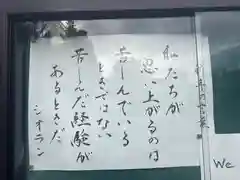 今月の言葉
私たちが
思い上がるのは
苦しんでいる
ときではない
苦しんだ経験が
あるときだ
シオラン
We